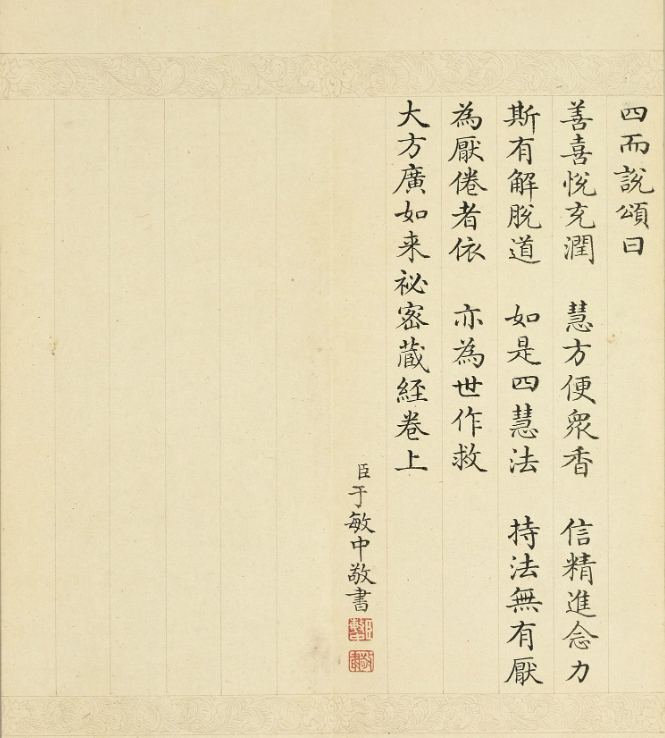 四而說頌曰
善喜悅充潤　慧方便眾香　信精進念力
斯有解脫道　如是四慧法　持法無有厭
為厭倦者依　亦為世作救
大方廣如来祕密蔵經卷上
臣于敏中敬書